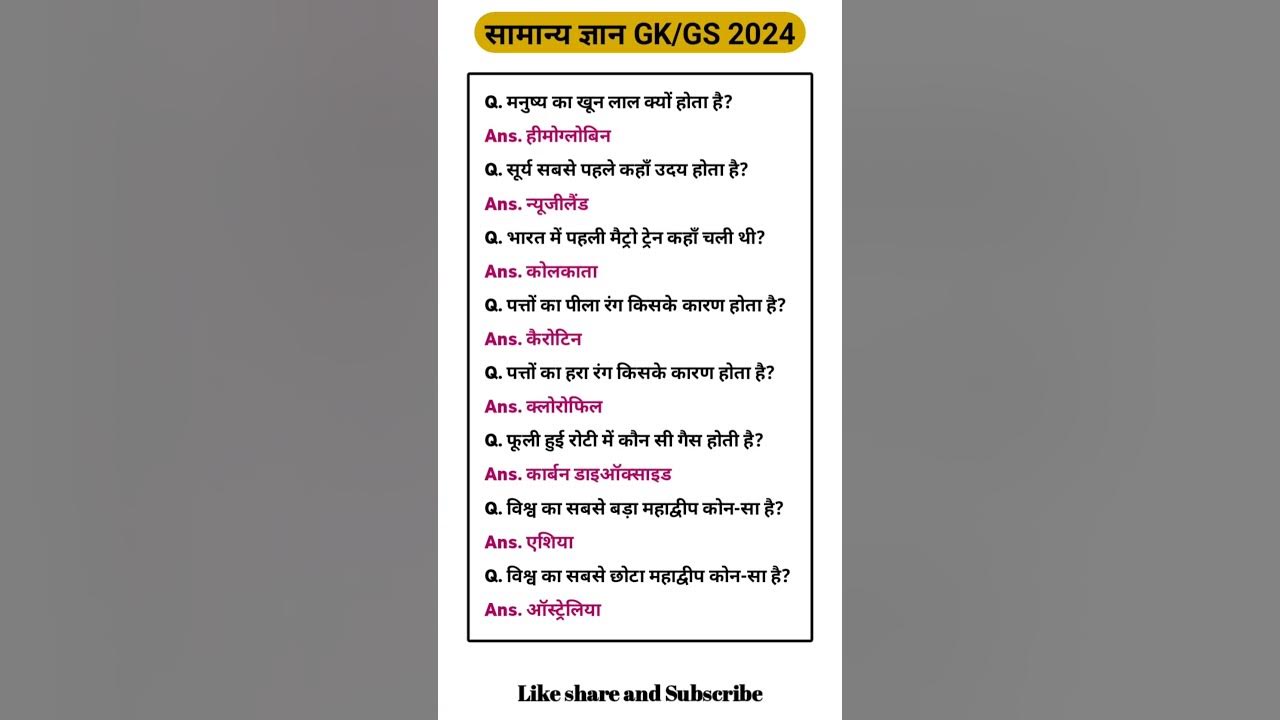 सामान्य ज्ञान GK/GS 2024
Q. मनुष्य का खून लाल क्यों होता है?
Ans. हीमोग्लोबिन
Q. सूर्य सबसे पहले कहाँ उदय होता है?
Ans. न्यूजीलैंड
Q. भारत में पहली मैट्रो ट्रेन कहाँ चली थी?
Ans. कोलकाता
Q. पत्तों का पीला रंग किसके कारण होता है?
Ans. कैरोटिन
Q. पत्तों का हरा रंग किसके कारण होता है?
Ans. क्लोरोफिल
Q. फूली हुई रोटी में कौन सी गैस होती है?
Ans. कार्बन डाइऑक्साइड
Q. विश्व का सबसे बड़ा महाद्वीप कोन-सा है?
Ans. एशिया
Q. विश्व का सबसे छोटा महाद्वीप कोन-सा है?
Ans. ऑस्ट्रेलिया
Like share and Subscribe